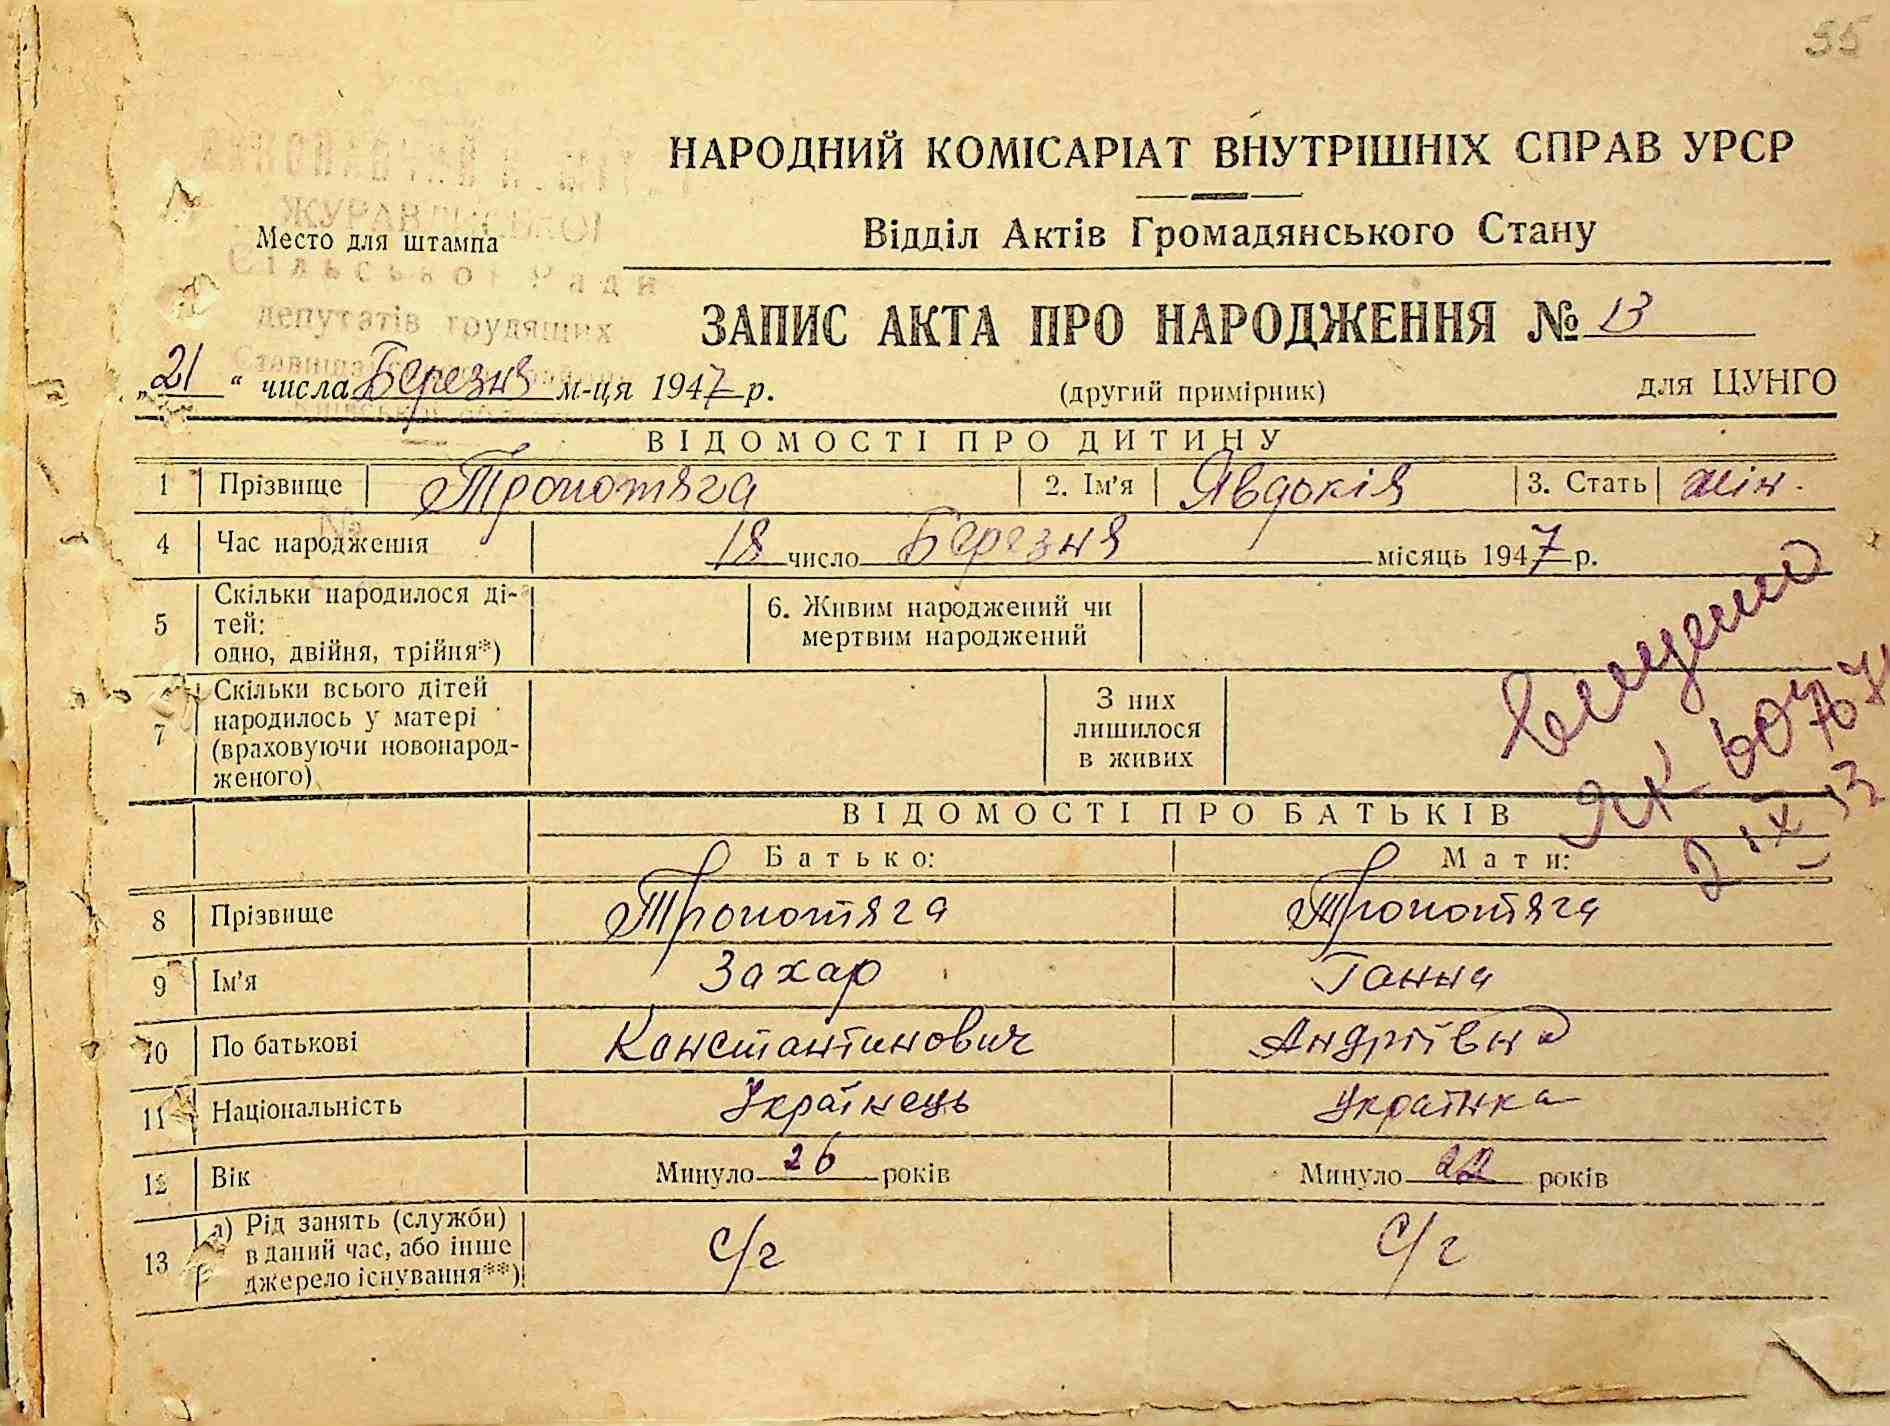 35
НАРОДНИЙ КОМІСАРІАТ ВНУТРІШНІХ СПРАВ УРСР
ЖУРАВЛИСЬКОІ
Место для штампа
Відділ Актів Громадянського Стану
Сільської Ради
депутатів трудящих
ЗАПИС АКТА ПРО НАРОДЖЕННЯ № 13
„21“ числа Березня м-ця 1947 р.
(другий примірник)
для ЦУНГО
ВІДОМОСТІ ПРО ДИТИНУ
1 Прізвище Тропотяга 2. Ім'я Явдокія 3. Стать жін.
4 Час народження 18 число Березня місяць 1947 р.
5 Скільки народилося ді-
тей:
одно, двійня, трійня*)
6. Живим народжений чи
мертвим народжений
7 Скільки всього дітей
народилось у матері
(враховуючи новонарод-
женого)
З них
лишилося
в живих
ВІДОМОСТІ ПРО БАТЬКІВ
Батько: Мати:
8 Прізвище Тропотяга Тропотяга
9 Ім'я Захар Ганна
10 По батькові Константинович Андріївна
11 Національність Українець Українка
12 Вік Минуло 26 років Минуло 22 років
13 а) Рід занять (служби)
в даний час, або інше
джерело існування**)
с/г с/г